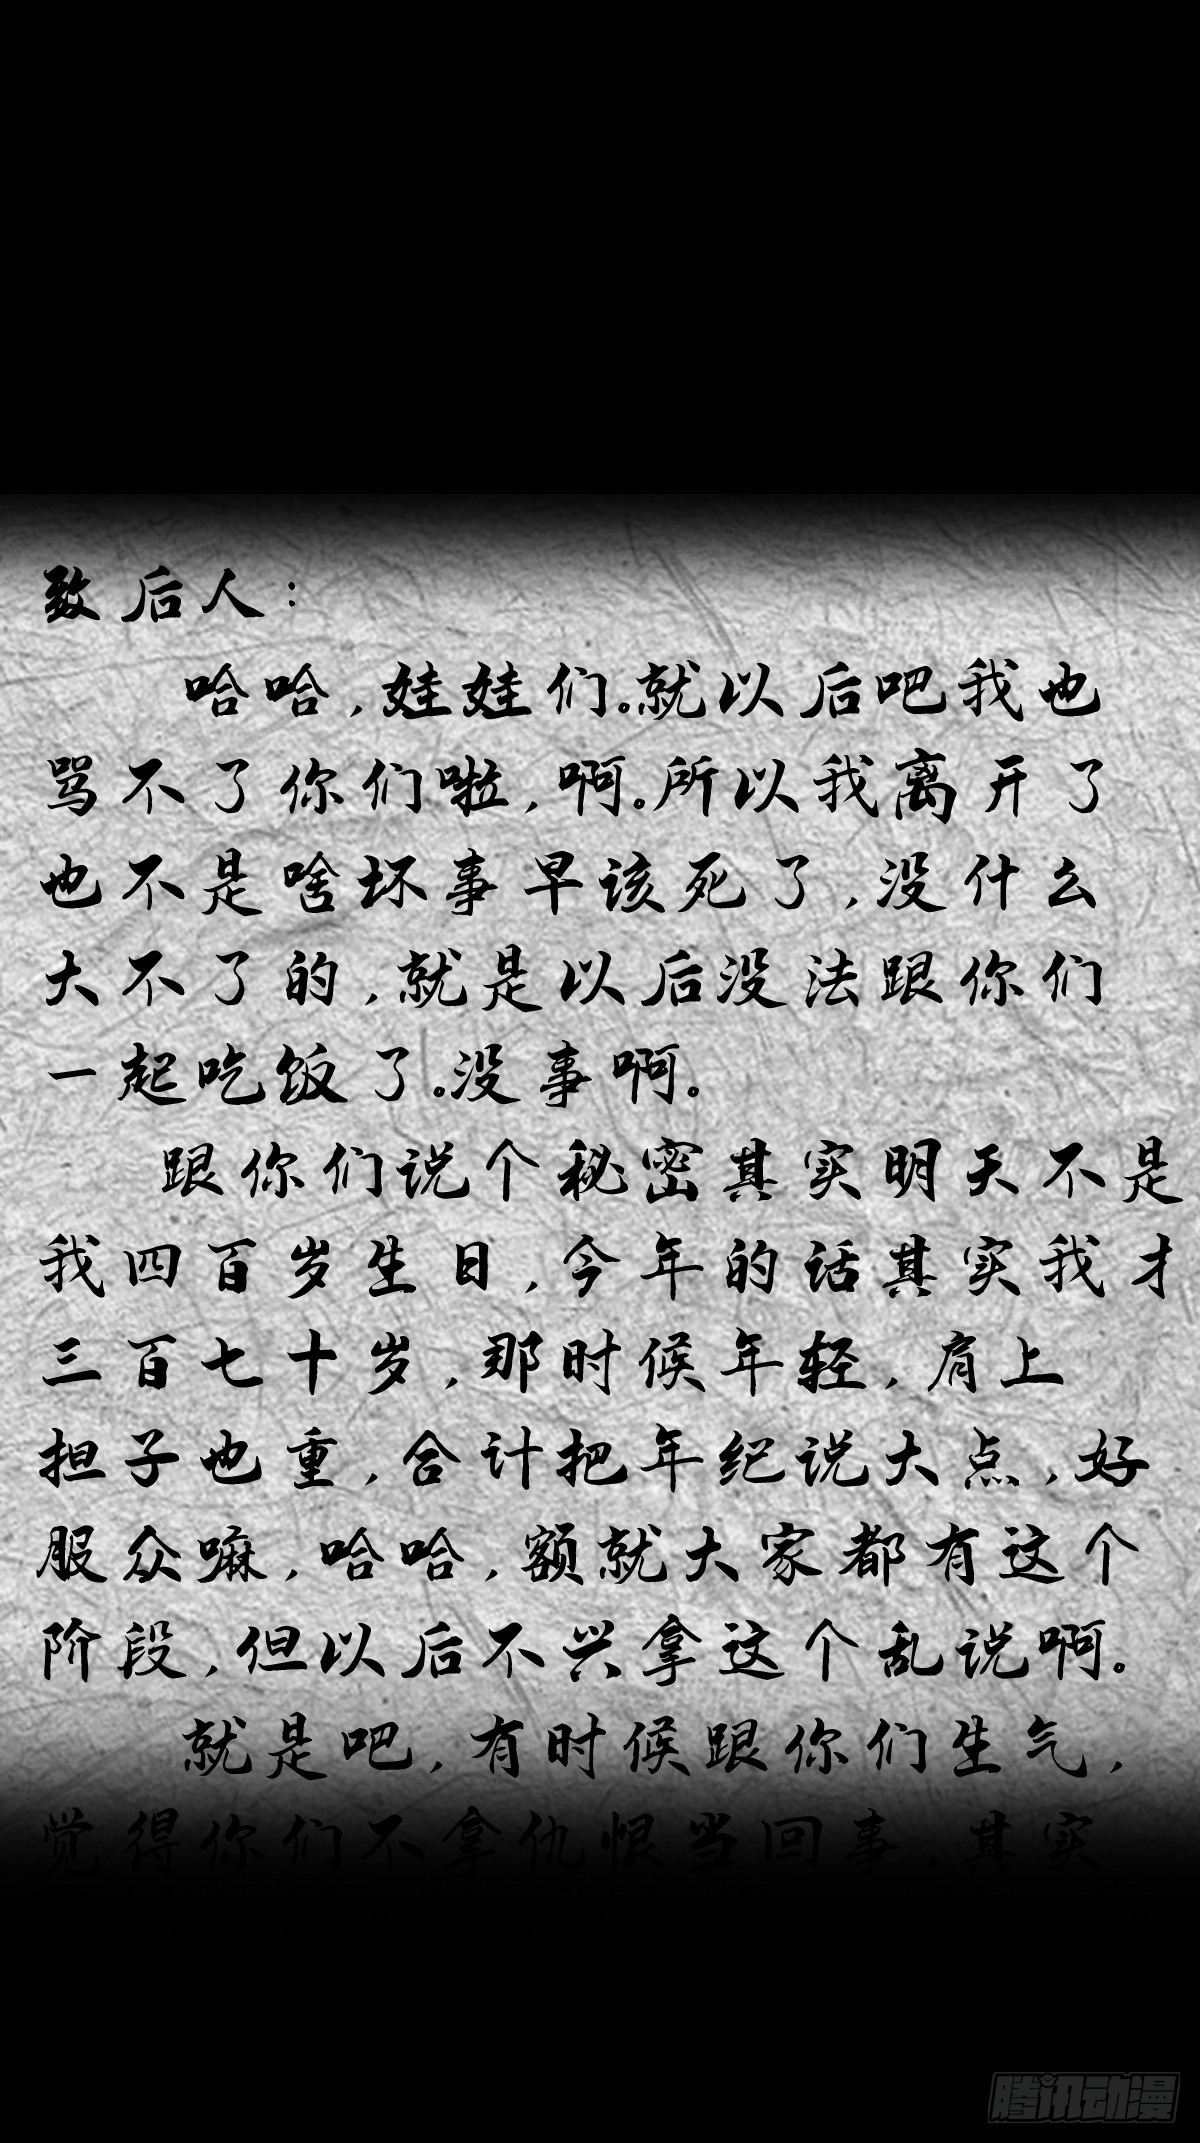 致后人：
哈哈，娃娃们。就以后吧我也
骂不了你们啦，啊。所以我离开了
也不是啥坏事早该死了，没什么
大不了的，就是以后没法跟你们
一起吃饭了。没事啊。
跟你们说个秘密其实明天不是
我四百岁生日，今年的话其实我才
三百七十岁，那时候年轻，肩上
担子也重，合计把年纪说大点，好
服众嘛，哈哈，额就大家都有这个
阶段，但以后不兴拿这个乱说啊。
就是吧，有时候跟你们生气，
觉得你们不拿仇恨当回事，其实
腾讯动漫